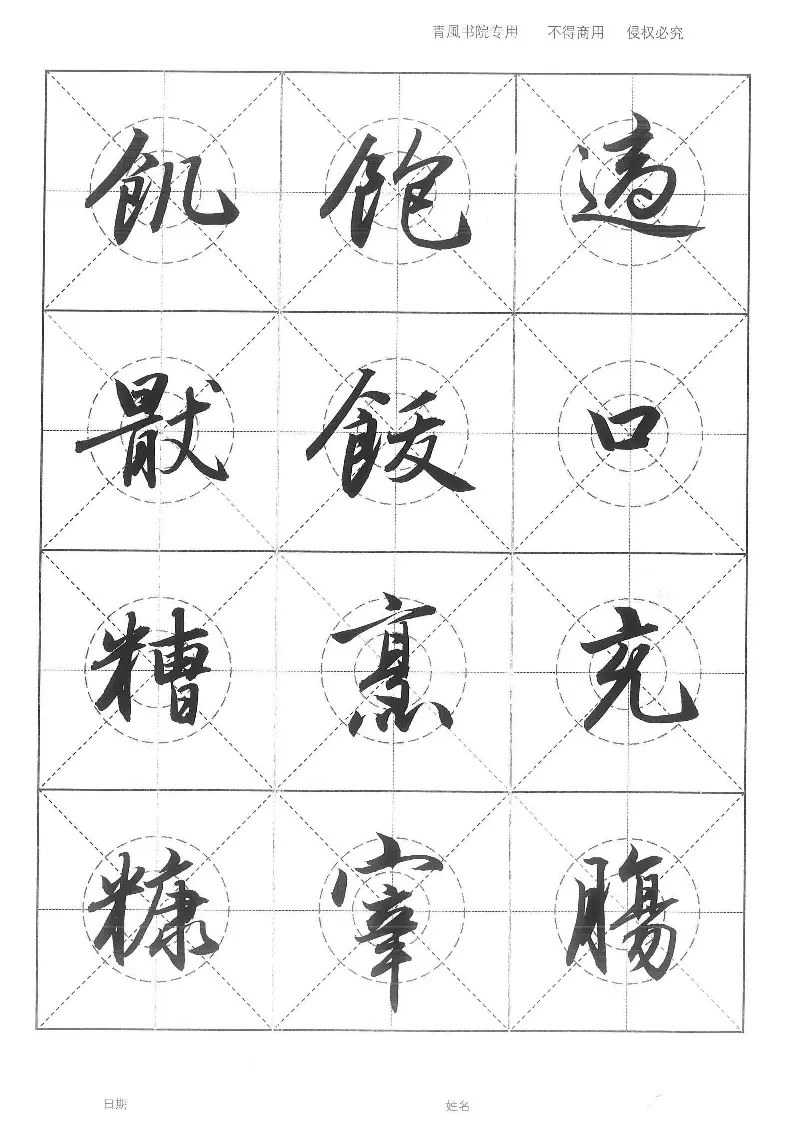 青風书院专用 不得商用 侵权必究
適口充腸
飽飫烹宰
飢猒糟糠
日期 姓名